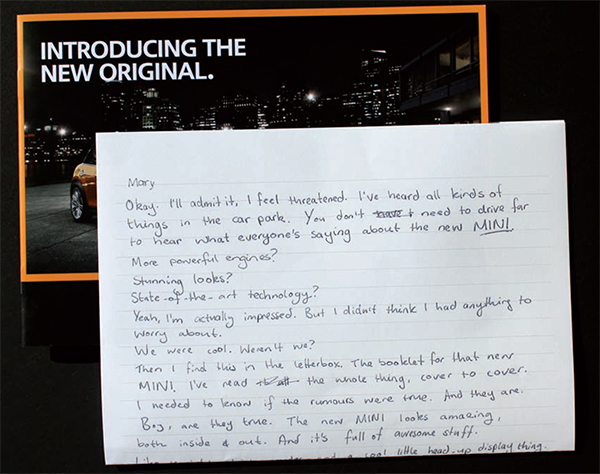 INTRODUCING THE
NEW ORIGINAL.
Mary
Okay. I'll admit it, I feel threatened. I've heard all kinds of
things in the car park. You don't have t need to drive far
to hear what everyone's saying about the new MINI.
More powerful engines?
Stunning looks?
State-of-the-art technology?
Yeah, I'm actually impressed. But I didn't think I had anything to
worry about.
We were cool. Weren't we?
Then I find this in the letterbox. The booklet for that new
MINI. I've read the whole thing, cover to cover.
I needed to know if the rumours were true. And they are.
Boy, are they true. The new MINI looks amazing,
both inside & out. And it's full of awesome stuff.
and a cool little head-up display thing.